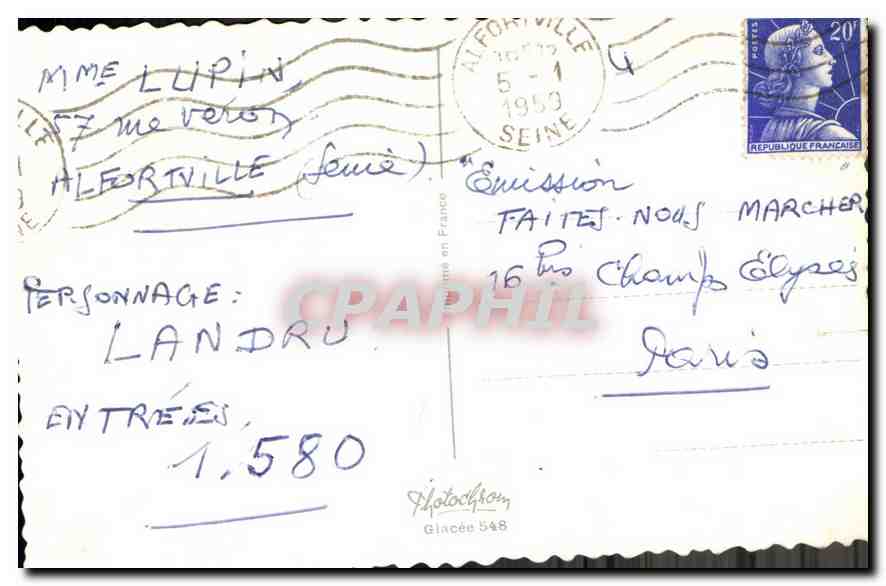 MME LUPIN
57 rue Véron
ALFORTVILLE (Seine).
PERSONNAGE:
LANDRU.
ENTRÉES,
1.580
ALFORTVILLE
5-1
1959
SEINE
POSTES
20F
REPUBLIQUE FRANÇAISE
"Emission
FAITES-NOUS MARCHER"
16 bis Champs Élysés
Paris
en France
CPAPHIL
Photochrom
Glacée 548